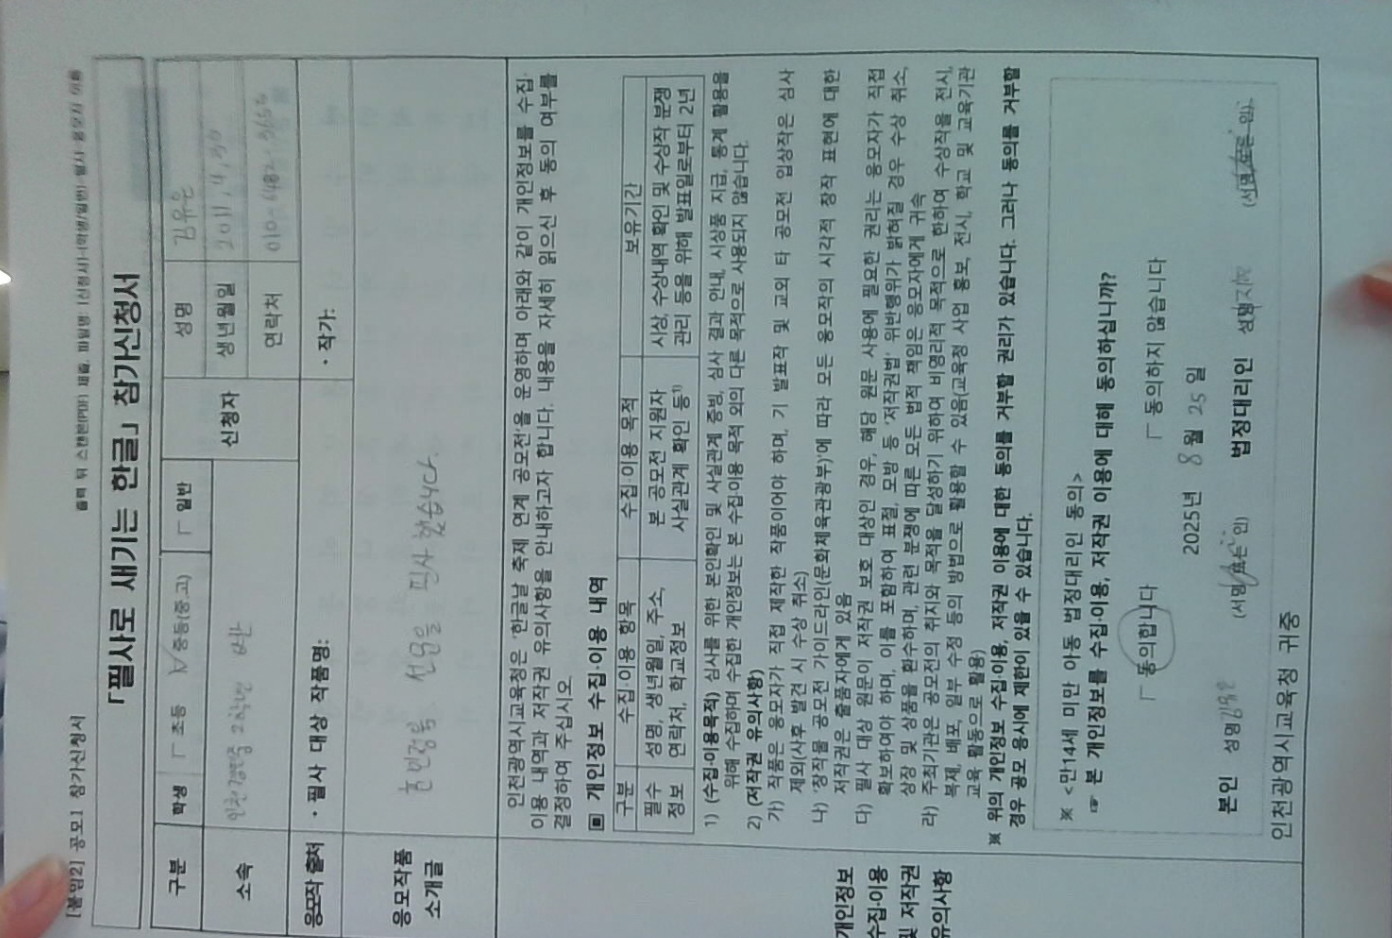 [붙임2] 공모1 참가신청서
출력 뒤 스캔본(PDF) 제출, 파일명: (신청서)-(학생/일반) 필사 응모자 이름
「필사로 새기는 한글」 참가신청서
구분 학생 ┌ 초등 ┌ 중등(중고) ┌ 일반 신청자 성명 김유은
생년월일 2011, 4, 30
소속 2학년 연락처
응모작 출처 · 필사 대상 작품명: · 작가:
응모작품
소개글
훈민정음 을 필사 했습니다.
개인정보
수집·이용
및 저작권
유의사항
인천광역시교육청은 '한글날 축제 연계 공모전'을 운영하며 아래와 같이 개인정보를 수집·
이용 내역과 저작권 유의사항을 안내하고자 합니다. 내용을 자세히 읽으신 후 동의 여부를
결정하여 주십시오.
▣ 개인정보 수집·이용 내역
구분 수집·이용 항목 수집·이용 목적 보유기간
필수 성명, 생년월일, 주소, 본 공모전 지원자 시상, 수상내역 확인 및 수상작 분쟁
정보 연락처, 학교정보 사실관계 확인 등¹⁾ 관리 등을 위해 발표일로부터 2년
1) (수집·이용목적) 심사를 위한 본인확인 및 사실관계 증빙, 심사 결과 안내, 시상품 지급, 통계 활용을
위해 수집하며 수집한 개인정보는 본 수집·이용 목적 외의 다른 목적으로 사용되지 않습니다.
2) (저작권 유의사항)
가) 작품은 응모자가 직접 제작한 작품이어야 하며, 기 발표작 및 교외 타 공모전 입상작은 심사
제외(사후 발견 시 수상 취소)
나) '창작물 공모전 가이드라인(문화체육관광부)'에 따라 모든 응모작의 시각적 창작 표현에 대한
저작권은 출품자에게 있음
다) 필사 대상 원문이 저작권 보호 대상인 경우, 해당 원문 사용에 필요한 권리는 응모자가 직접
확보하여야 하며, 이를 포함하여 표절, 모방 등 '저작권법' 위반행위가 밝혀질 경우 수상 취소,
상장 및 상품을 환수하며, 관련 분쟁에 따른 모든 법적 책임은 응모자에게 귀속
라) 주최기관은 공모전의 취지와 목적을 달성하기 위하여 비영리적 목적으로 한하여 수상작을 전시,
복제, 배포, 일부 수정 등의 방법으로 활용할 수 있음(교육청 사업 홍보, 전시, 학교 및 교육기관
교육 활동으로 활용)
※ 위의 개인정보 수집·이용, 저작권 이용에 대한 동의를 거부할 권리가 있습니다. 그러나 동의를 거부할
경우 공모 응시에 제한이 있을 수 있습니다.
※ <만14세 미만 아동 법정대리인 동의>
☞ 본 개인정보를 수집·이용, 저작권 이용에 대해 동의하십니까?
┌ 동의합니다 ┌ 동의하지 않습니다
2025년 8월 25일
본인 성명 김유은 (서명 또는 인) 법정대리인 성명 (서명 또는 인)
인천광역시교육청 귀중